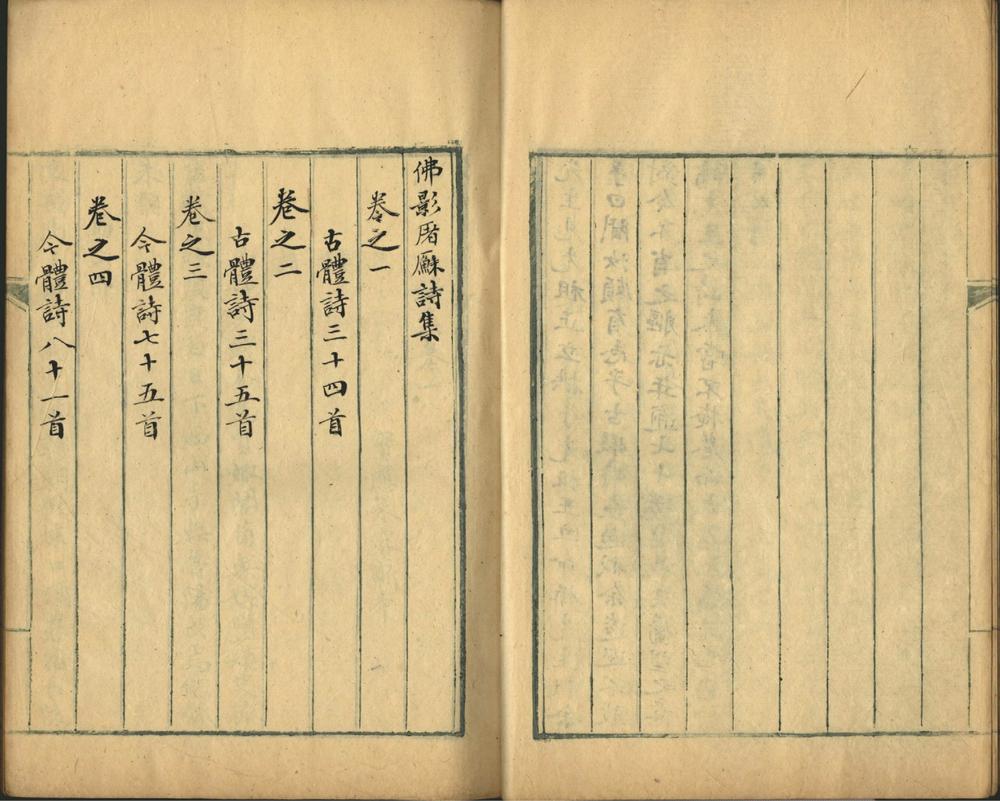 佛影厝廯詩集
卷之一
古體詩三十四首
卷之二
古體詩三十五首
卷之三
今體詩七十五首
卷之四
今體詩八十一首